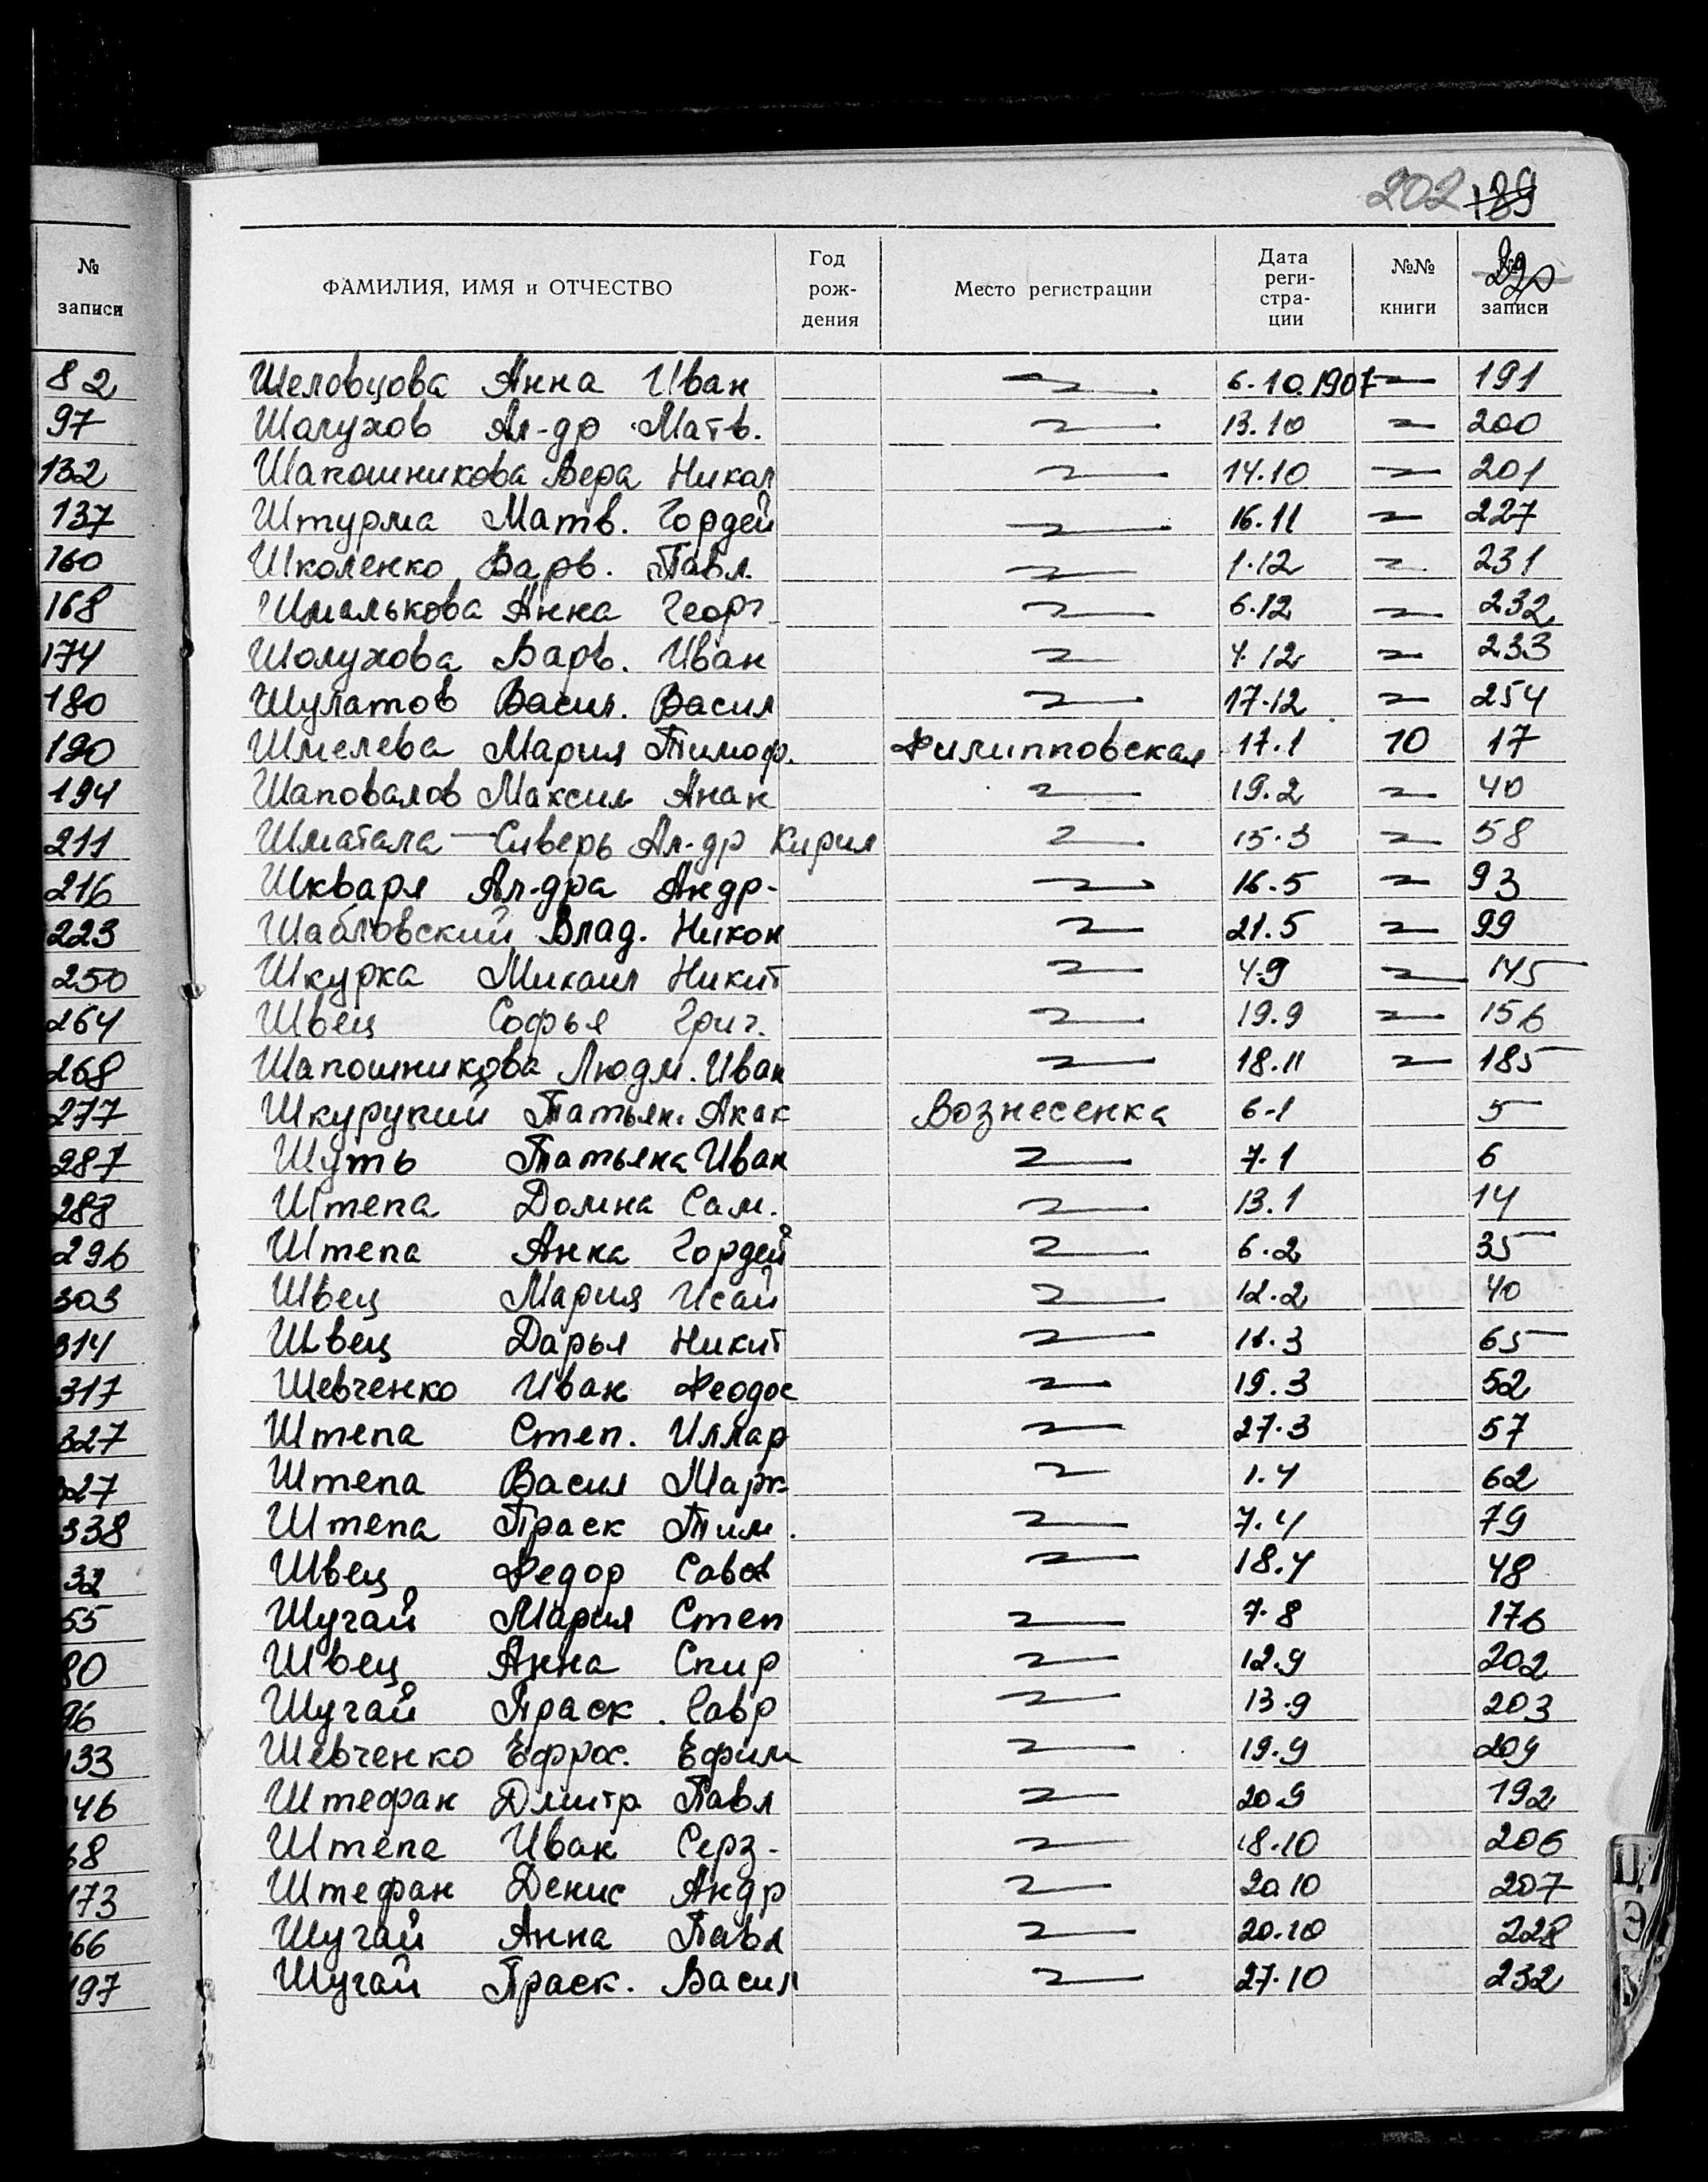 202 189
№ записи
82
97
132
137
160
168
174
180
190
194
211
216
223
250
264
268
277
287
288
296
303
314
317
327
327
338
32
55
80
96
133
146
68
173
166
197
ФАМИЛИЯ, ИМЯ и ОТЧЕСТВО Год рож-дения Место регистрации Дата реги-стра-ции №№ книги № записи
Шеловцова Анна Иван 6.10.1907 191
Шолухов Ал-др Матв. 13.10 200
Шапошникова Вера Никол 14.10 201
Штурма Матв. Гордей 16.11 227
Школенко Варв. Павл. 1.12 231
Шмалькова Анна Георг 6.12 232
Шолухова Варв. Иван 7.12 233
Шулатов Васил. Васил 17.12 254
Шмелева Мария Тимоф. Филипповская 17.1 10 17
Шаповалов Максим Анан 19.2 40
Шматала-Сиверь Ал-др Кирил 15.3 58
Шкваря Ал-дра Андр- 16.5 93
Шабловский Влад. Никон 21.5 99
Шкурка Михаил Никит 4.9 145
Швец Софья Григ. 19.9 156
Шапошникова Людм. Иван 18.11 185
Шкурупий Татьян. Акак Вознесенка 6.1 5
Шуть Татьяна Иван 7.1 6
Штепа Домна Сам. 13.1 14
Штепа Анна Гордей 6.2 35
Швец Мария Исай 12.2 40
Швец Дарья Никит 11.3 65
Шевченко Иван Феодос 19.3 52
Штепа Степ. Иллар 27.3 57
Штепа Васил Марк 1.4 62
Штепа Праск Тим. 7.4 79
Швец Федор Савв 18.4 48
Шугай Мария Степ 7.8 176
Швец Анна Спир 12.9 202
Шугай Праск. Гавр 13.9 203
Шевченко Ефрос. Ефим 19.9 209
Штефан Дмитр. Павл 20.9 192
Штепа Иван Серг- 18.10 206
Штефан Денис Андр 20.10 207
Шугай Анна Павл 20.10 228
Шугай Праск. Васил 27.10 232
Э